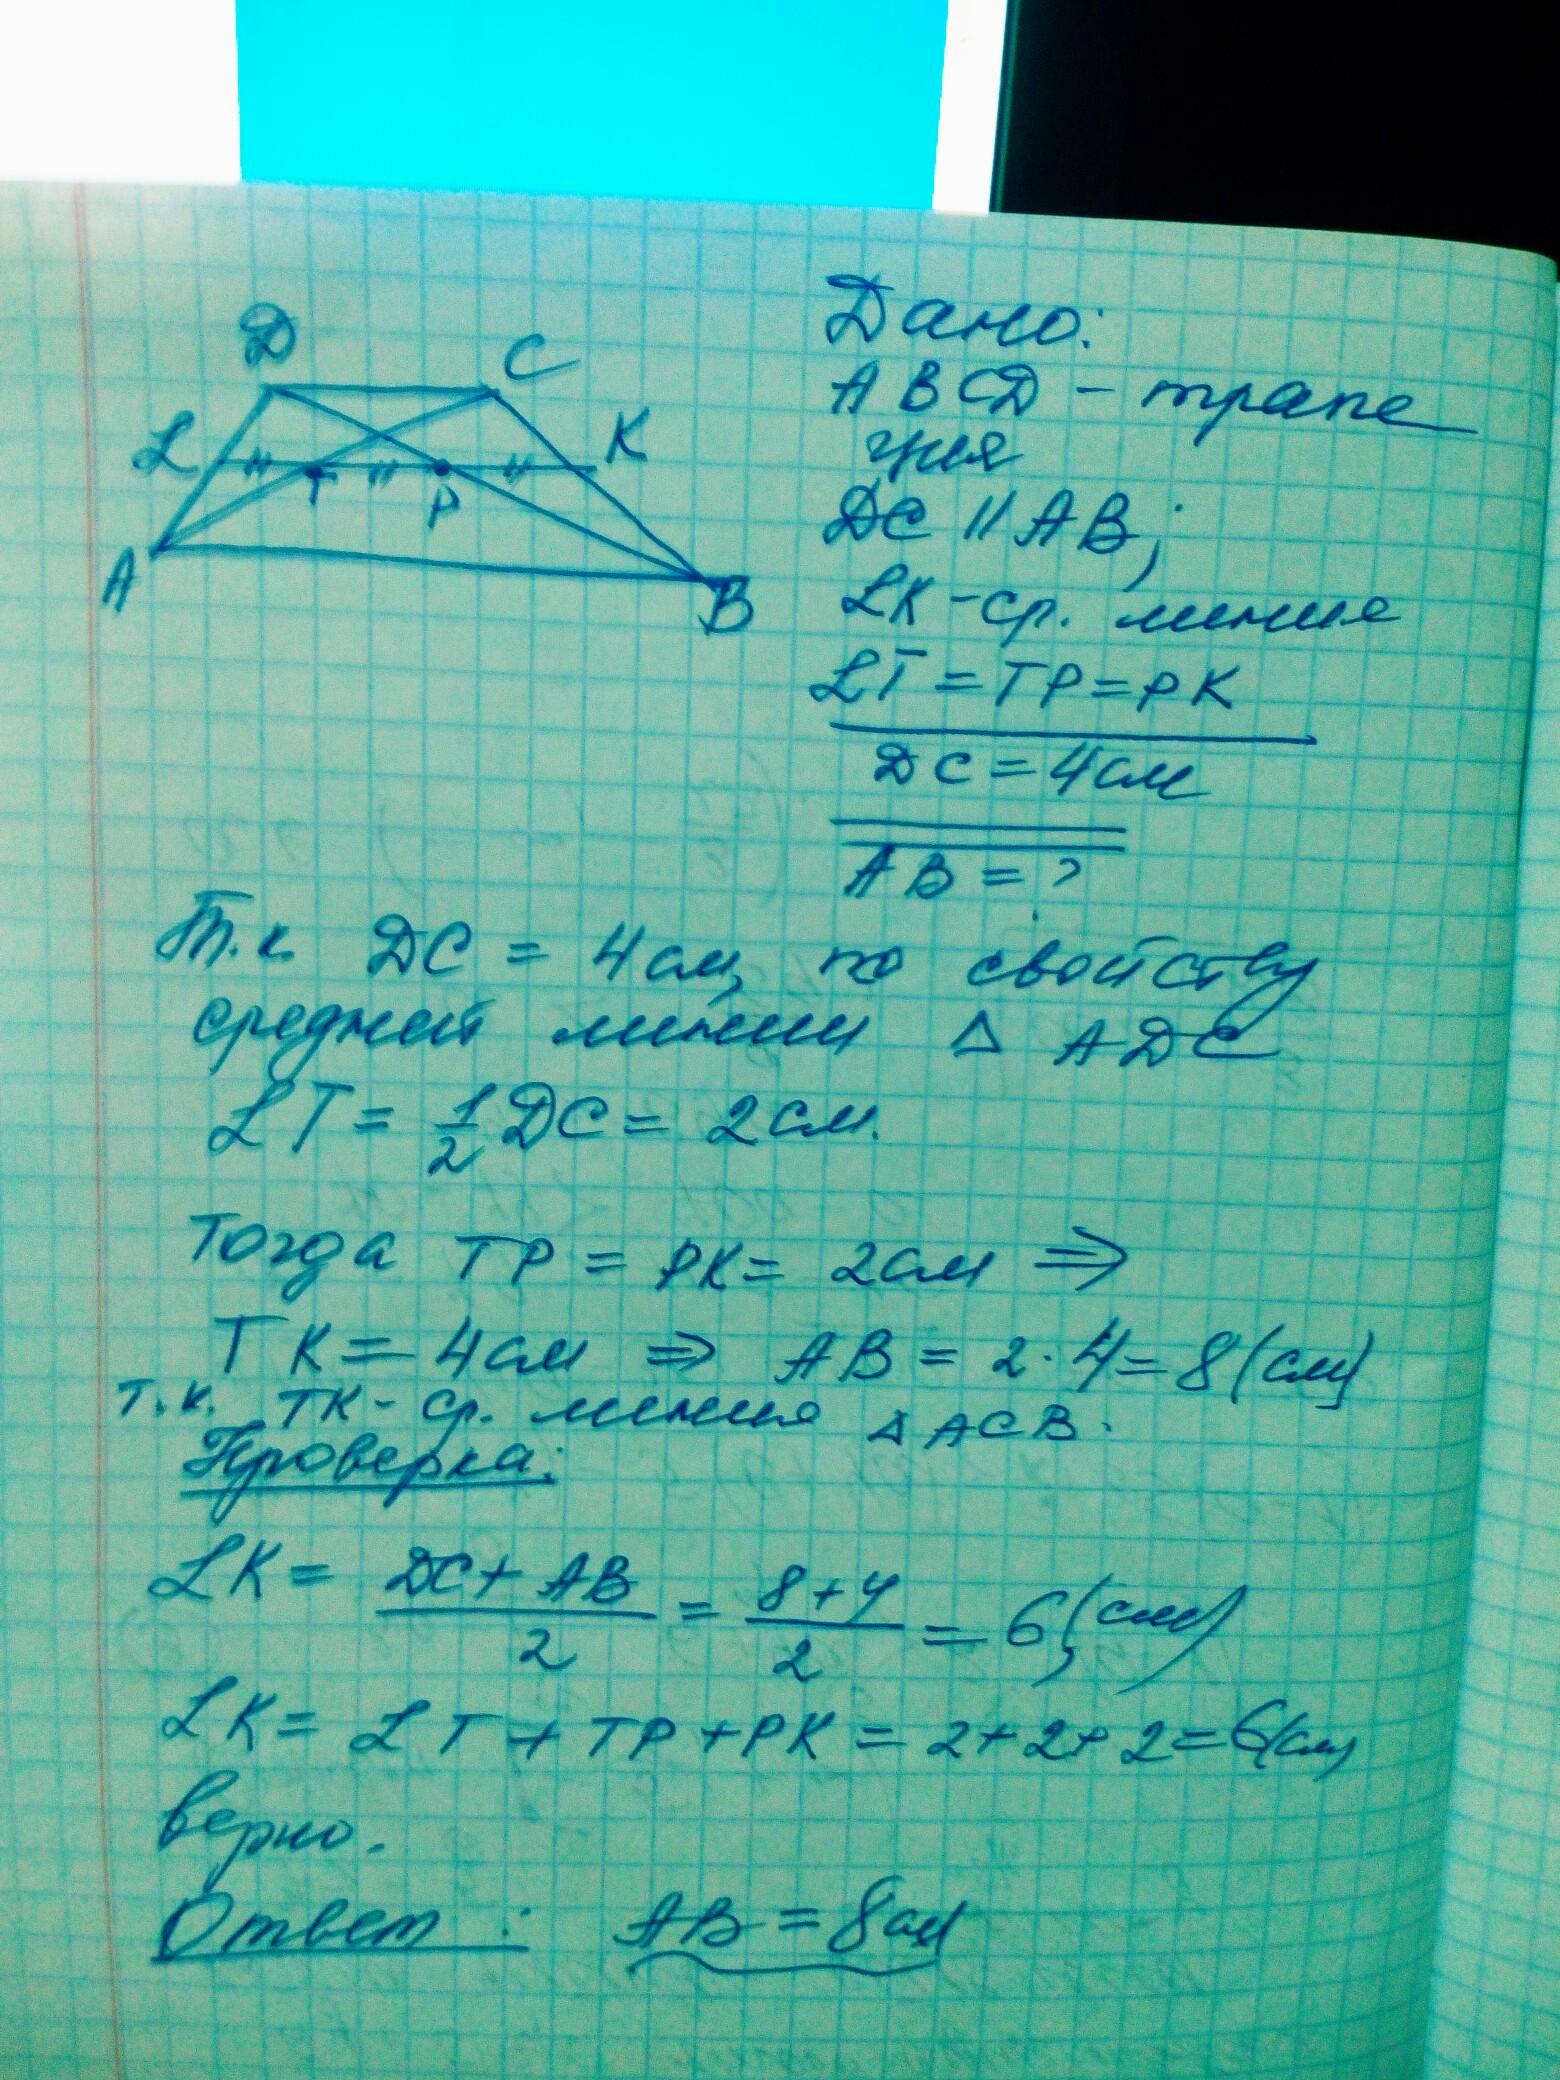 D C
L K
T P
A B
Дано:
ABCD - трапе
ция
DC || AB;
LK - ср. линия
LT = TP = PK
DC = 4 см
AB = ?
Т.к. DC = 4 см, по свойству
средней линии Δ ADC
LT = 1/2 DC = 2 см.
Тогда TP = PK = 2 см ⇒
TK = 4 см ⇒ AB = 2 · 4 = 8 (см)
т.к. TK - ср. линия Δ ACB.
Проверка:
LK = (DC + AB)/2 = (8 + 4)/2 = 6 (см)
LK = LT + TP + PK = 2 + 2 + 2 = 6 (см)
верно.
Ответ: AB = 8 см